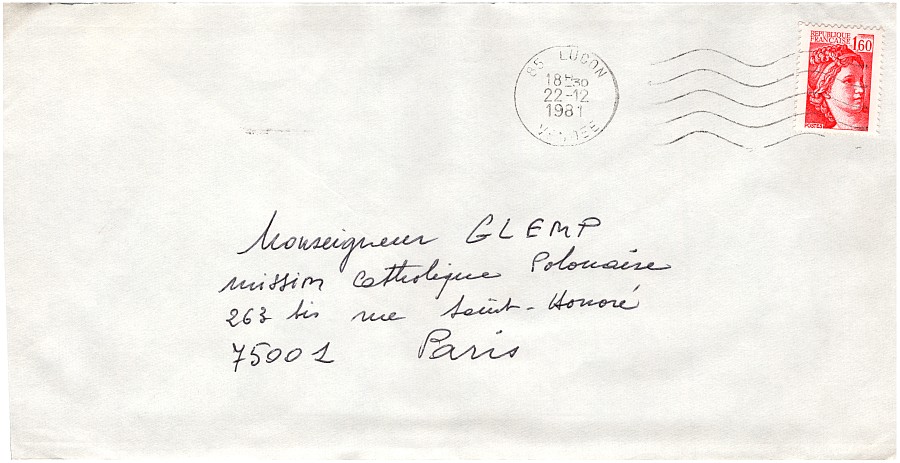 REPUBLIQUE
FRANÇAISE 1,60
POSTES
85 LUCON
18H30
22-12
1981
VENDEE
Monseigneur GLEMP
mission Catholique Polonaise
263 bis rue Saint-Honoré
75001 Paris